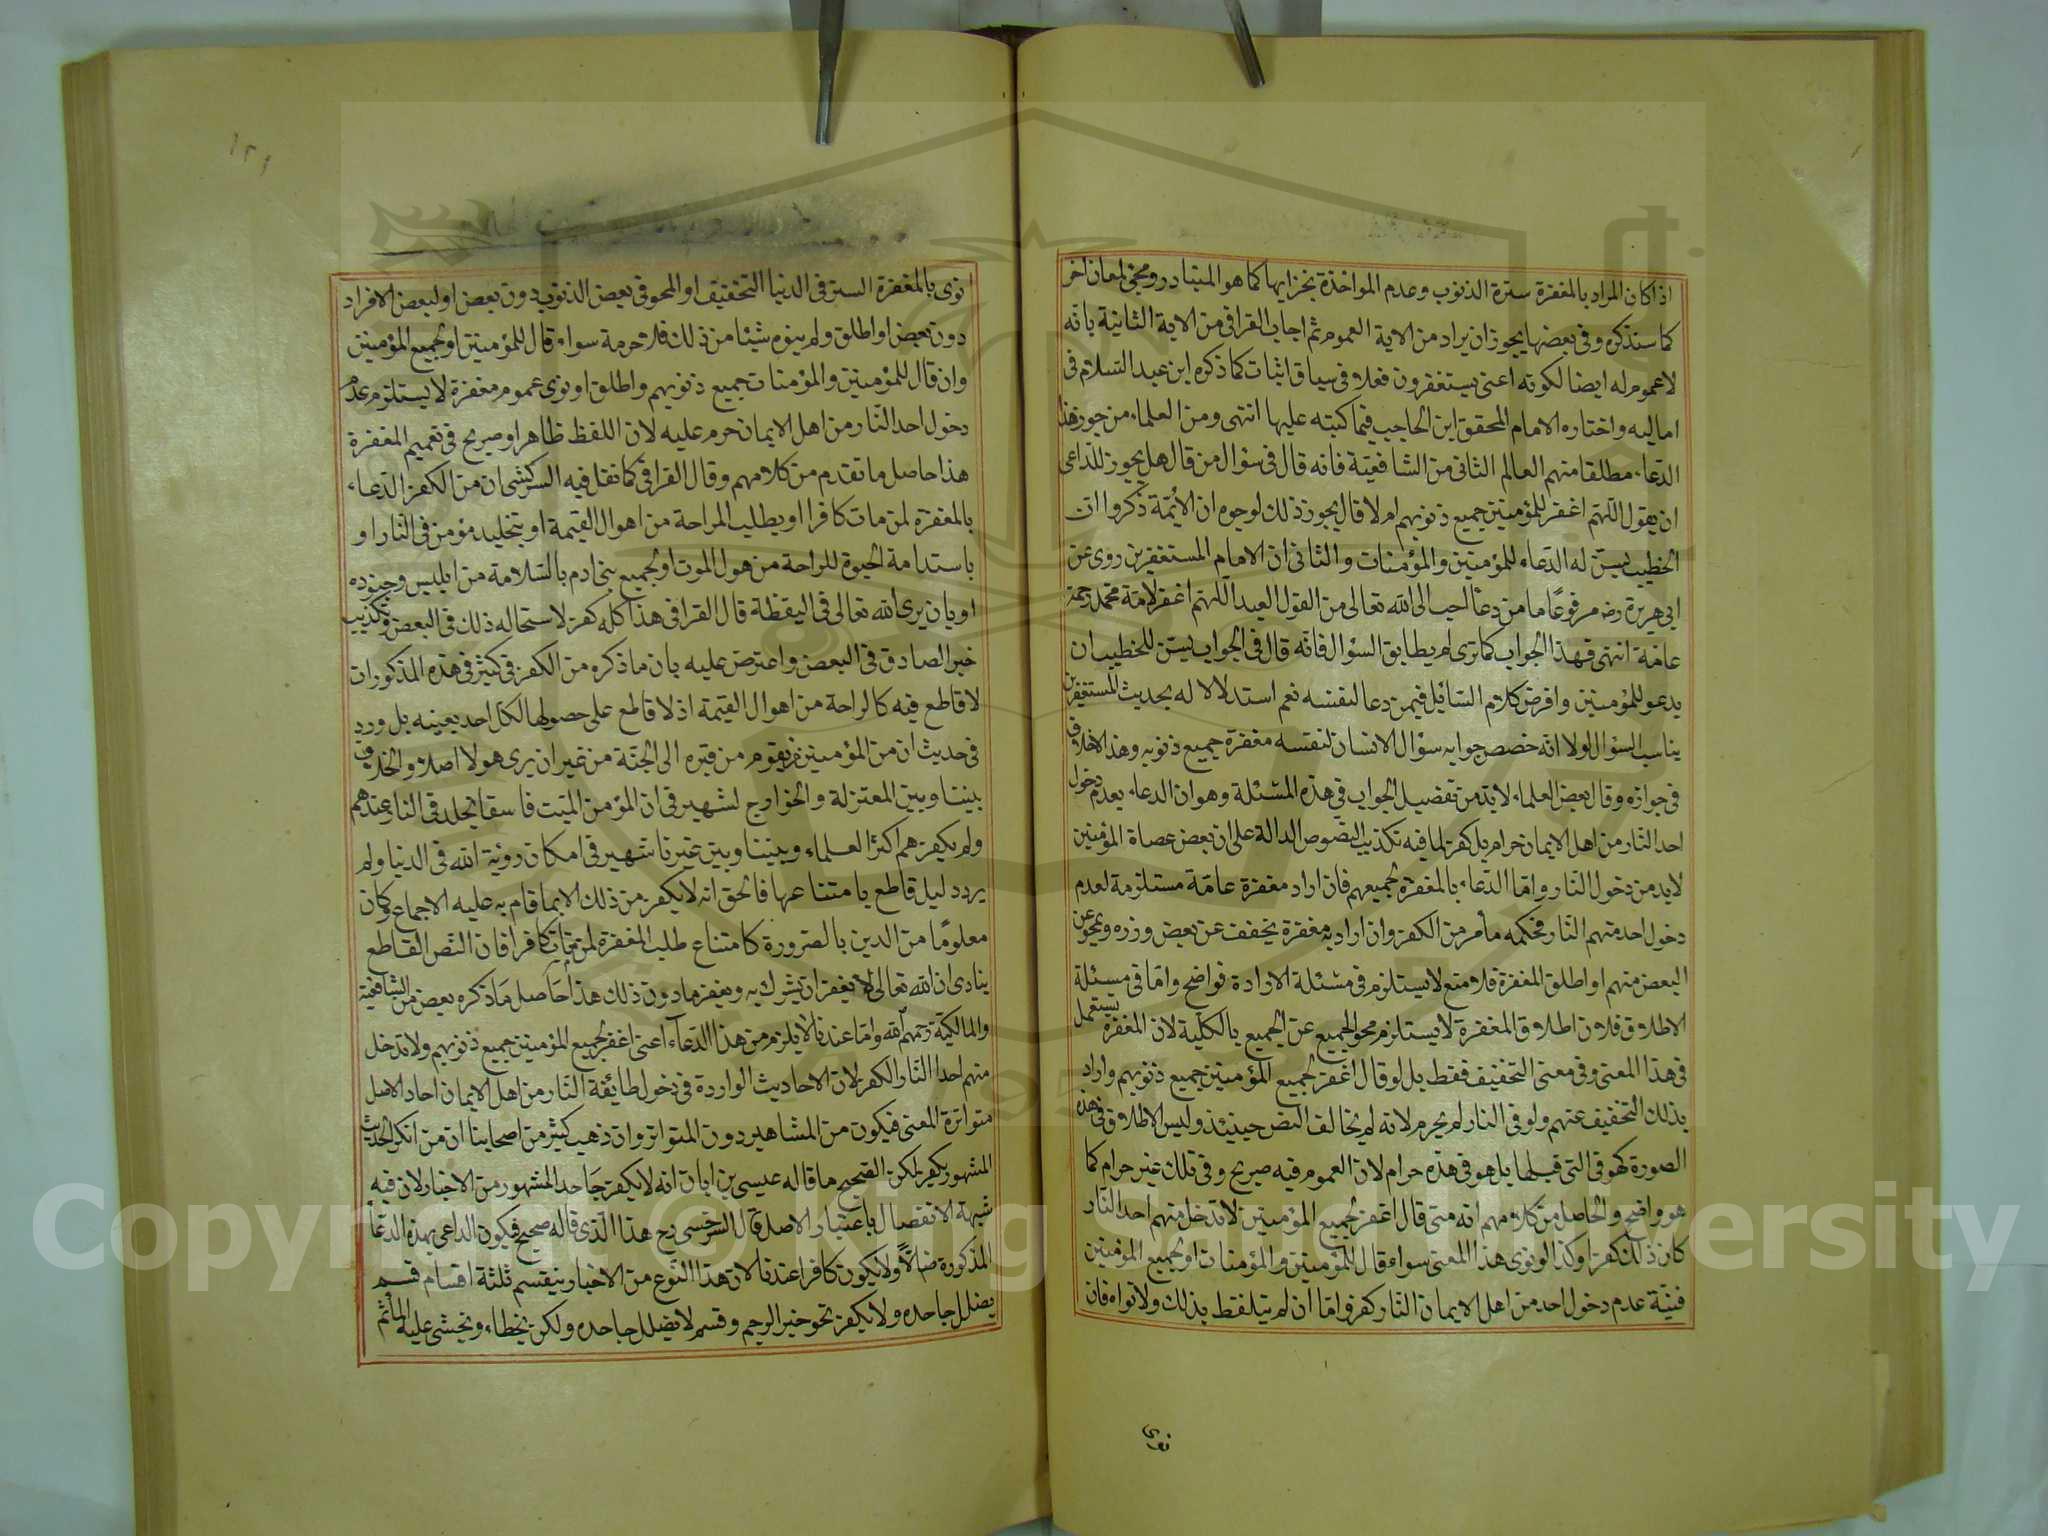 اذا كان المراد بالمغفرة سترة الذنوب وعدم المواخذة بجزايها كما هو المتبادر ومجئ لمعان اخر
كما سنذكره وفى بعضها يجوز ان يراد من الاية العموم ثم اجاب القرافى من الاية الثانية بانه
لا عموم له ايضا لكونه اعنى يستغفرون فعلا فى سياق اثبات كما ذكره ابن عبد السلام فى
اماليه واختاره الامام المحقق ابن الحاجب فيما كتبته عليها انتهى ومن العلماء من جوز هذا
الدعاء مطلقا منهم العالم الثانى من الشافعية فانه قال فى سؤال من قال هل يجوز للداعى
ان يقول اللهم اغفر للمؤمنين جميع ذنوبهم ام لا قال يجوز ذلك لوجوه ان الائمة ذكروا ان
الخطيب يسن له الدعاء للمؤمنين والمؤمنات والثانى ان الامام المستغفرين روى عن
ابى هريرة رضه مرفوعا ما من دعا احب الى الله تعالى من القول العبد اللهم اغفر لامة محمد رحمة
عامة انتهى فهذا الجواب كما ترى لم يطابق السؤال فانه قال فى الجواب يسن للخطيب ان
يدعو للمؤمنين وافرض كلام السائل فيمن دعا لنفسه نعم استدلالا له بحديث المستغفرين
يناسب السؤال لولا انه خصص جوابه سؤال الانسان لنفسه مغفرة جميع ذنوبه وهذا لاخلاف
فى جوازه وقال بعض العلماء لابد من تفصيل الجواب فى هذه المسئلة وهو ان الدعاء بعدم دخول
احد النار من اهل الايمان حرام بل كفر لما فيه تكذيب النصوص الدالة على ان بعض عصاة المؤمنين
لابد من دخول النار واما الدعاء بالمغفرة لجميعهم فان اراد مغفرة عامة مستلزمة لعدم
دخول احد منهم النار فحكمه مامر من الكفر وان اراد به مغفرة يخفف عن بعض وزره ويمحو عن
البعض منهم او اطلق المغفرة فلا منع لايستلزم فى مسئلة الارادة فواضح واما فى مسئلة
الاطلاق فلان اطلاق المغفرة لايستلزم محو الجميع عن الجميع بالكلية لان المغفرة يستعمل
فى هذا المعنى وفى معنى التخفيف فقط بل لو قال اغفر لجميع المؤمنين جميع ذنوبهم واراد
بذلك التخفيف عنهم ولو فى النار لم يحرم لانه لم يخالف النص حينئذ وليس الاطلاق فى هذه
الصورة كهو فى التى قبلها بل هو فى هذه حرام لان العموم فيه صريح وفى تلك غير حرام كما
هو واضح والحاصل من كلامهم انه متى قال اغفر لجميع المؤمنين لاتدخل منهم احدا النار
كان ذلك كفرا وكذا لو نوى هذا المعنى سواء قال للمؤمنين والمؤمنات او لجميع المؤمنين
فنية عدم دخول احد من اهل الايمان النار كفر واما ان لم يتلفظ بذلك ولانواه فان
نوى
نوى بالمغفرة الستر فى الدنيا التخفيف او المحو فى بعض الذنوب دون بعض او لبعض الافراد
دون بعض او اطلق ولم ينوه شيئا من ذلك فلا حرمة سواء قال للمؤمنين او لجميع المؤمنين
وان قال للمؤمنين والمؤمنات جميع ذنوبهم واطلق او نوى عموم مغفرة لايستلزم عدم
دخول احد النار من اهل الايمان حرم عليه لان اللفظ ظاهر او صريح فى تعميم المغفرة
هذا حاصل ما تقدم من كلامهم وقال القرافى كما نقل فيه السركشى ان من الكفر الدعاء
بالمغفرة لمن مات كافرا او يطلب المراحة من اهوال القيمة او بتخليد مؤمن فى النار او
باستدامة الحيوة للراحة من هول الموت او لجميع بنى ادم بالسلامة من ابليس وجنوده
او بان يرى الله تعالى فى اليقظة قال القرافى هذا كله كفر لاستحاله ذلك فى البعض وتكذيب
خبر الصادق فى البعض واعترض عليه بان ماذكره من الكفر فى كثير فى هذه المذكورات
لاقاطع فيه كالراحة من اهوال القيمة اذ لا قاطع على حصولها لكل احد بعينه بل ورد
فى حديث ان من المؤمنين من يقوم من قبره الى الجنة من غير ان يرى هولا اصلا والخلاف
بيننا وبين المعتزلة والخوارج لشهير فى ان المؤمن الميت فاسقا يخلد فى النار عندهم
ولم يكفرهم اكثر العلماء وبيننا وبين غيرنا شهير فى امكان روية الله فى الدنيا ولم
يرد دليل قاطع بامتناعها فالحق انه لايكفر من ذلك الا بما قام به عليه الاجماع وكان
معلوما من الدين بالضرورة كامتناع طلب المغفرة لمن مات كافرا فان النص القاطع
ينادى ان الله تعالى لا يغفر ان يشرك به ويغفر مادون ذلك هذا حاصل ماذكره بعض من الشافعية
والمالكية رحمهم الله واما عندنا لايلزم من هذا الدعاء اعنى اغفر لجميع المؤمنين جميع ذنوبهم ولاتدخل
منهم احدا النار الكفر لان الاحاديث الواردة فى دخول طائفة النار من اهل الايمان احاد الاصل
متواترة المعنى فيكون من المشاهير دون المتواتر وان ذهب كثير من اصحابنا ان من انكر الحديث
المشهور يكفر لكن الصحيح ما قاله عيسى بن ابان انه لايكفر جاحد المشهور من الاخبار لان فيه
شبهة الانفصال باعتبار الاصل قال السرخسى رح هذا الذى قاله صحيح فيكون الداعى بهذه الدعا
المذكورة ضالا ولايكون كافرا عندنا لان هذا النوع من الاخبار ينقسم ثلثة اقسام قسم
يضلل جاحده ولا يكفر نحو خبر الرجم وقسم لايضلل جاحده ولكن يخطاء ويخشى عليه المأثم
Copyright © King Saud University